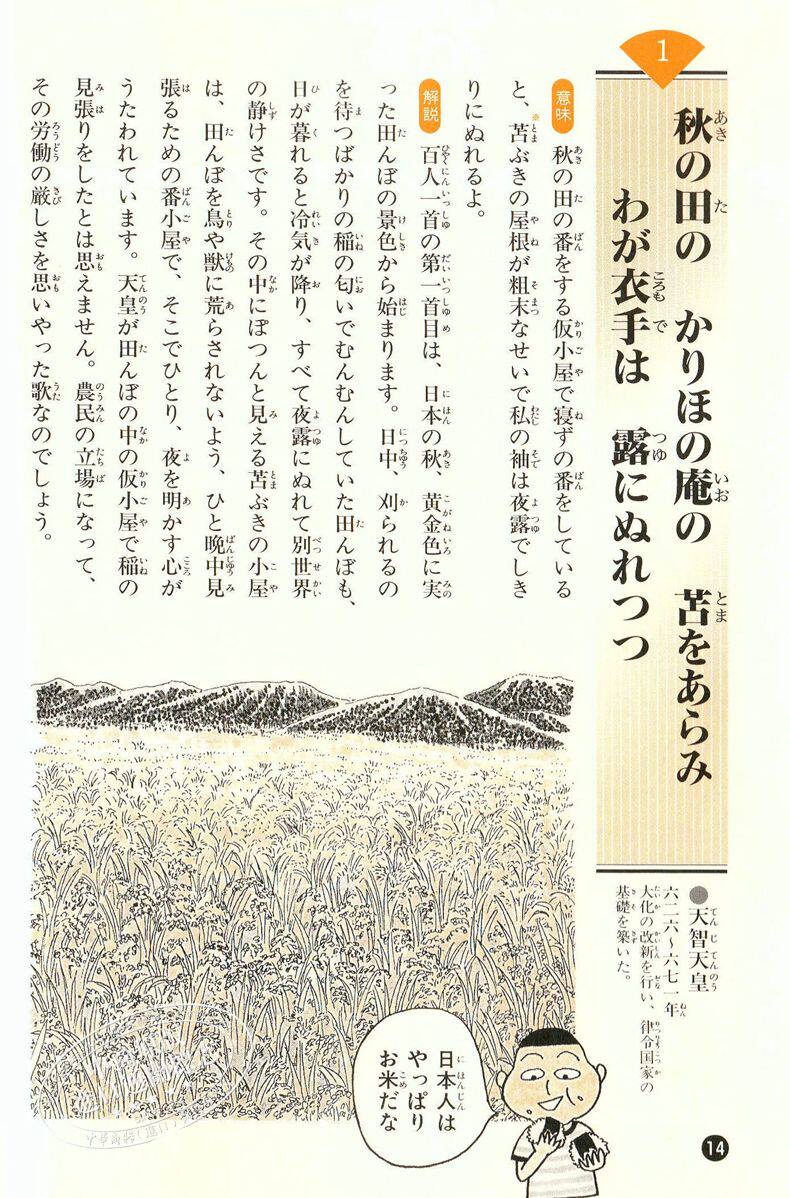 1
秋の田の　かりほの庵の　苫をあらみ
わが衣手は　露にぬれつつ
●天智天皇
六二六〜六七一年
大化の改新を行い、律令国家の
基礎を築いた。
意味　秋の田の番をする仮小屋で寝ずの番をしている
と、※苫ぶきの屋根が粗末なせいで私の袖は夜露でしき
りにぬれるよ。
解説　百人一首の第一首目は、日本の秋、黄金色に実
った田んぼの景色から始まります。日中、刈られるの
を待つばかりの稲の匂いでむんむんしていた田んぼも、
日が暮れると冷気が降り、すべて夜露にぬれて別世界
の静けさです。その中にぽつんと見える苫ぶきの小屋
は、田んぼを鳥や獣に荒らされないよう、ひと晩中見
張るための番小屋で、そこでひとり、夜を明かす心が
うたわれています。天皇が田んぼの中の仮小屋で稲の
見張りをしたとは思えません。農民の立場になって、
その労働の厳しさを思いやった歌なのでしょう。
日本人は
やっぱり
お米だな
14